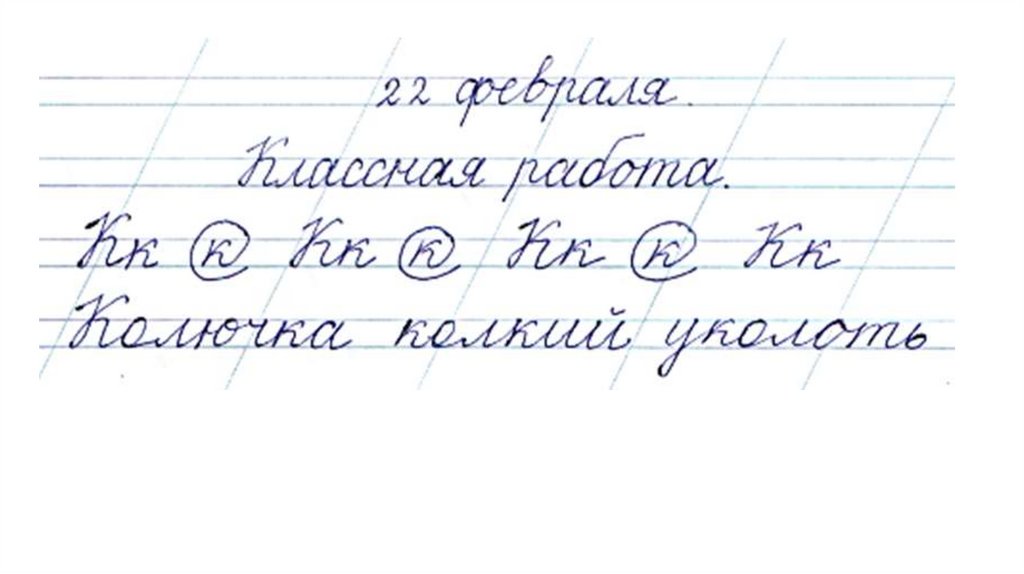 22 февраля.
Классная работа.
Кк к Кк к Кк к Кк
Колючка колкий уколоть